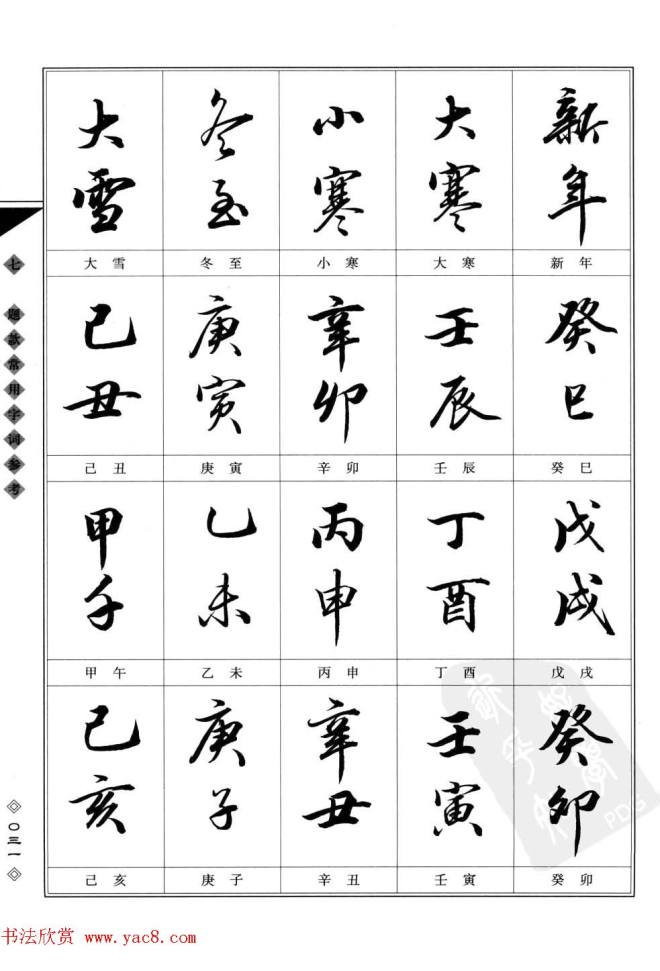 大雪
冬至
小寒
大寒
新年
大雪 冬至 小寒 大寒 新年
己丑
庚寅
辛卯
壬辰
癸巳
己丑 庚寅 辛卯 壬辰 癸巳
甲午
乙未
丙申
丁酉
戊戌
甲午 乙未 丙申 丁酉 戊戌
己亥
庚子
辛丑
壬寅
癸卯
己亥 庚子 辛丑 壬寅 癸卯
七 题款常用字词参考
〇三一
PDG
书法欣赏 www.yac8.com